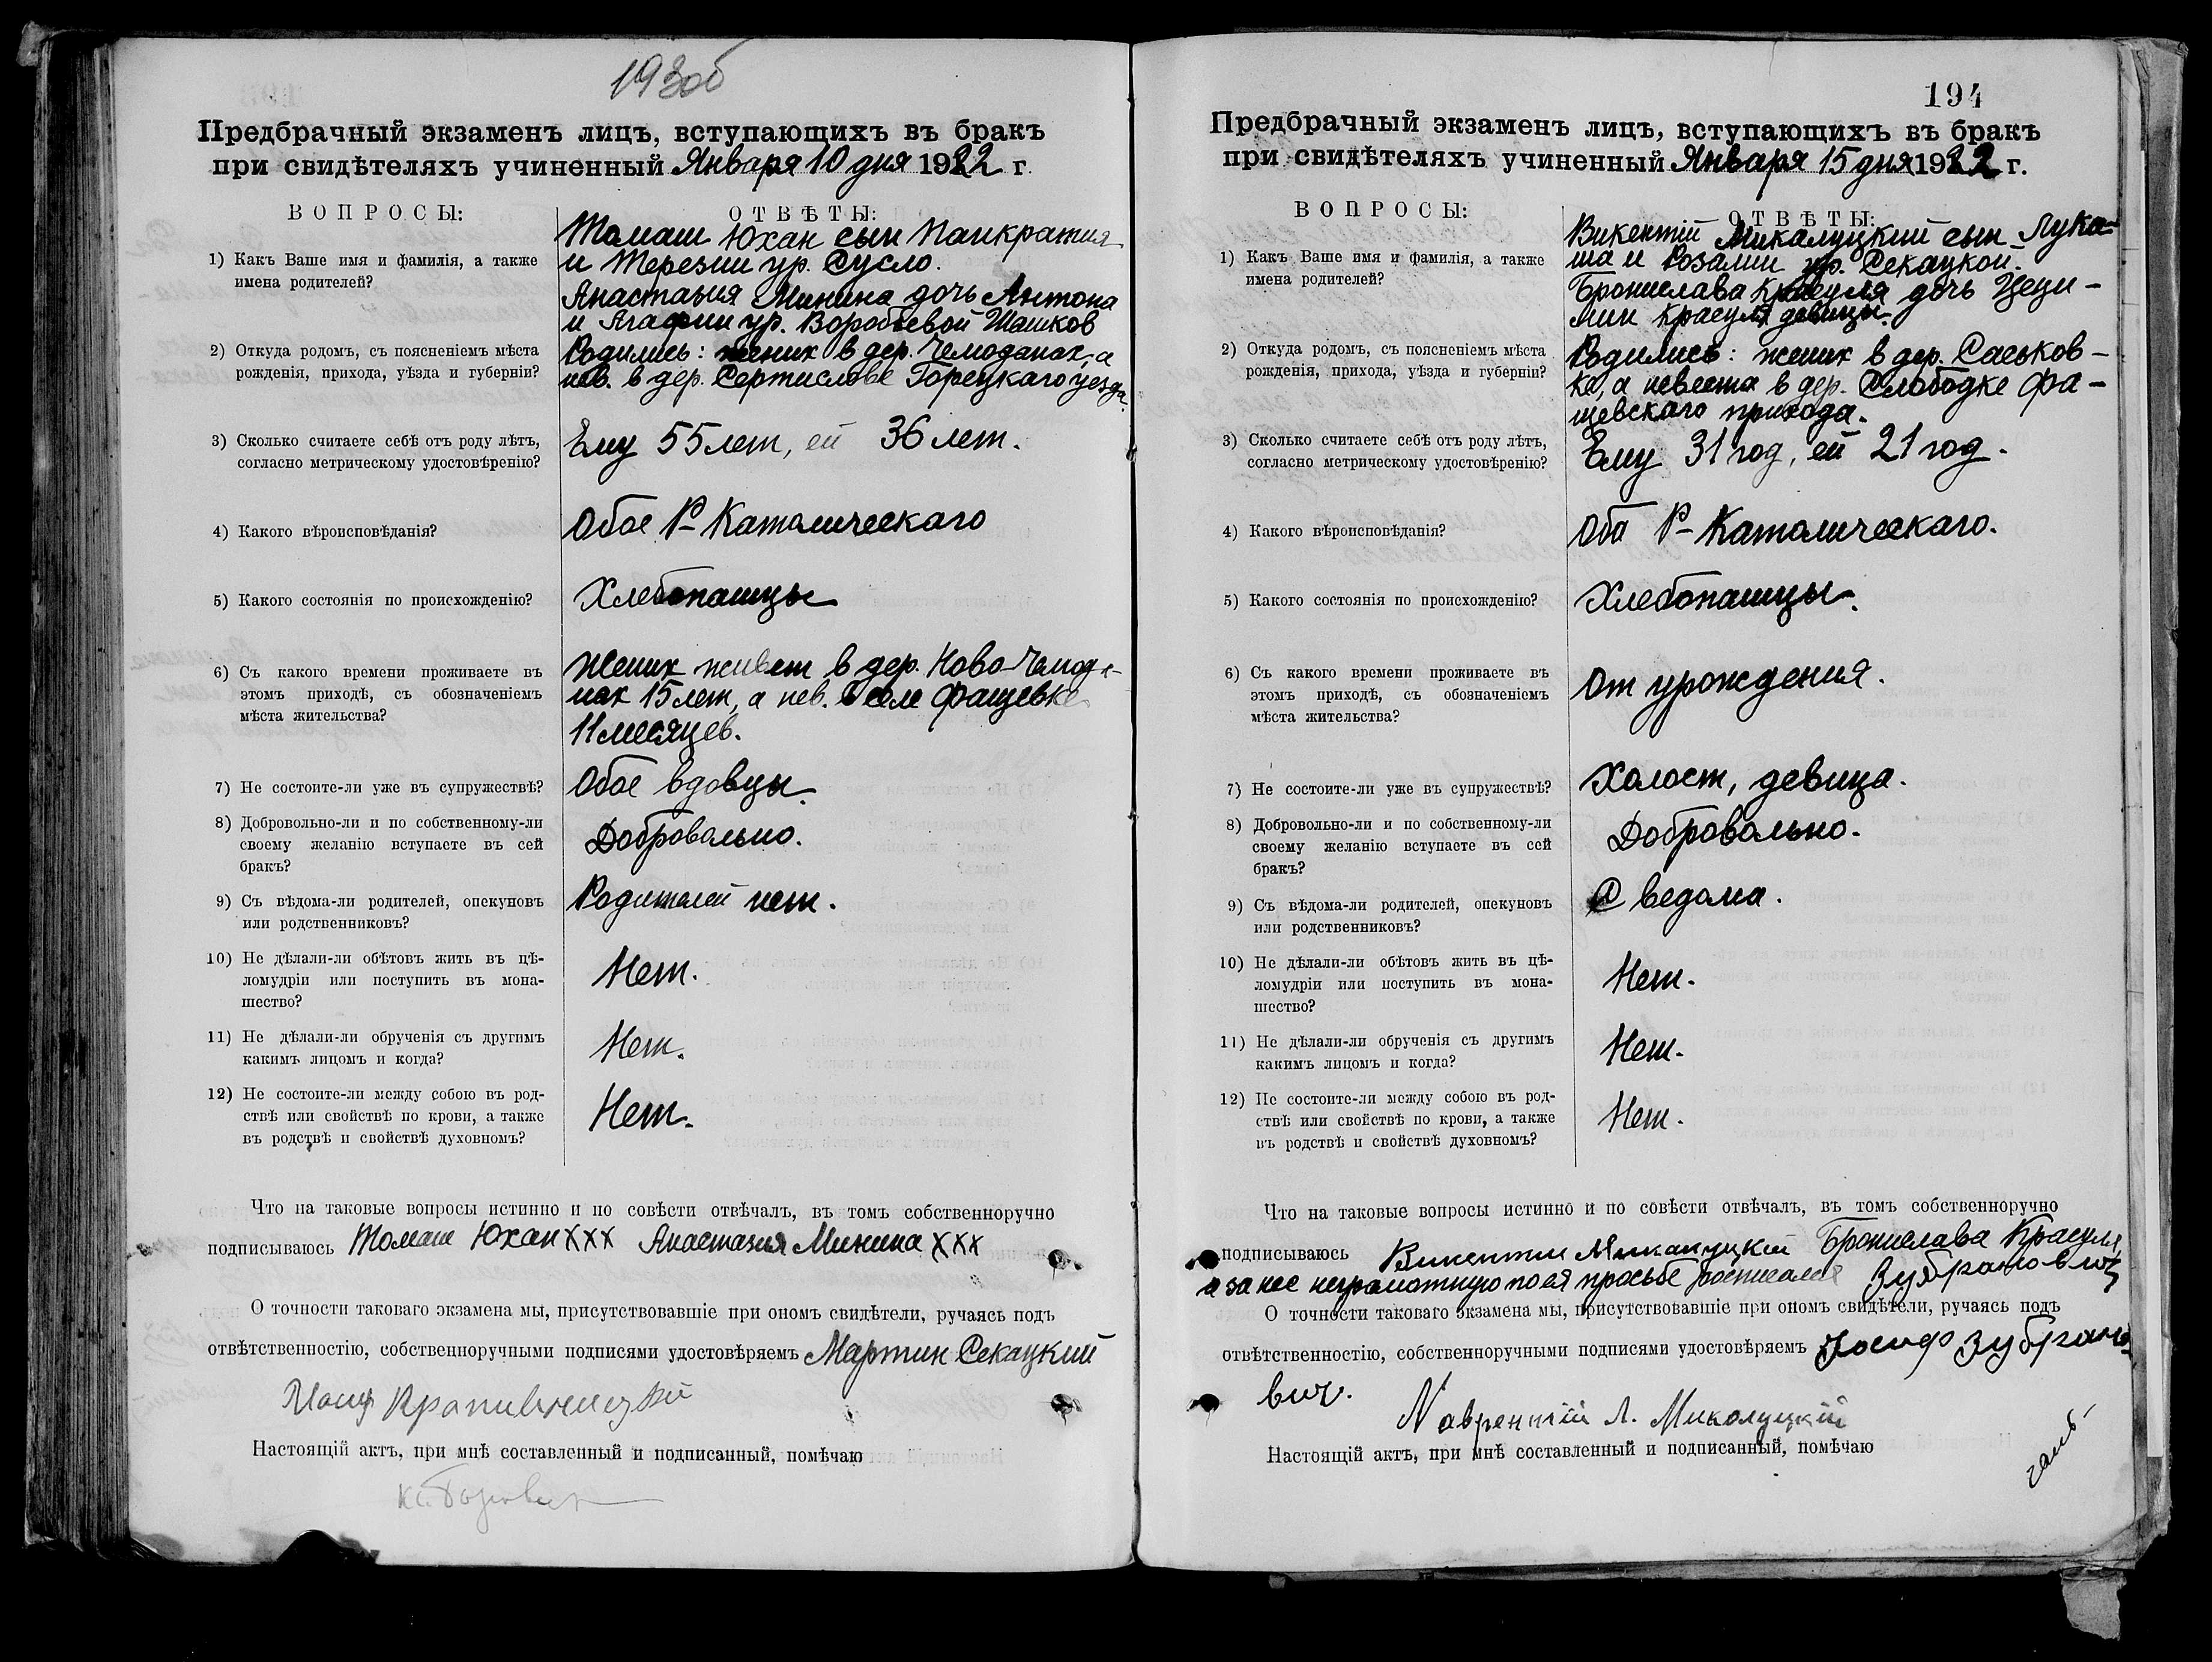 193об
Предбрачный экзаменъ лицъ, вступающихъ въ бракъ
при свидѣтеляхъ учиненный Января 10 дня 1922 г.
ВОПРОСЫ:
ОТВѢТЫ:
1) Какъ Ваше имя и фамилія, а также
имена родителей?
Томаш Юхан сын Панкратия
и Терезии ур. Сусло.
Анастазия Минина дочь Антона
и Агафии ур. Воробьевой Шашков
2) Откуда родомъ, съ поясненіемъ мѣста
рожденія, прихода, уѣзда и губерніи?
Родились: жених в дер. Чемоданах, а
нев. в дер. Сертислове Горецкаго уезда.
3) Сколько считаете себѣ отъ роду лѣтъ,
согласно метрическому удостовѣренію?
Ему 55 лет, ей 36 лет.
4) Какого вѣроисповѣданія?
Обое Р-Католическаго
5) Какого состоянія по происхожденію?
Хлебопашцы
6) Съ какого времени проживаете въ
этомъ приходѣ, съ обозначеніемъ
мѣста жительства?
Жених живет в дер. Ново-Чемода-
нах 15 лет, а нев. в селе Фащевке
11 месяцев.
7) Не состоите-ли уже въ супружествѣ?
Обое вдовцы.
8) Добровольно-ли и по собственному-ли
своему желанію вступаете въ сей
бракъ?
Добровольно.
9) Съ вѣдома-ли родителей, опекуновъ
или родственниковъ?
Родителей нет.
10) Не дѣлали-ли обѣтовъ жить въ цѣ-
ломудріи или поступить въ мона-
шество?
Нет.
11) Не дѣлали-ли обрученія съ другимъ
какимъ лицомъ и когда?
Нет.
12) Не состоите-ли между собою въ род-
ствѣ или свойствѣ по крови, а также
въ родствѣ и свойствѣ духовномъ?
Нет.
Что на таковые вопросы истинно и по совѣсти отвѣчалъ, въ томъ собственноручно
подписываюсь Томаш Юхан ХХХ Анастазия Минина ХХХ
О точности таковаго экзамена мы, присутствовавшіе при ономъ свидѣтели, ручаясь подъ
отвѣтственностію, собственноручными подписями удостовѣряемъ Мартин Секацкий
Настоящій актъ, при мнѣ составленный и подписанный, помѣчаю
194
Предбрачный экзаменъ лицъ, вступающихъ въ бракъ
при свидѣтеляхъ учиненный Января 15 дня 1922 г.
ВОПРОСЫ:
ОТВѢТЫ:
1) Какъ Ваше имя и фамилія, а также
имена родителей?
Викентій Микалуцкий сын Лука-
ша и Розалии ур. Секацкой.
Бронислава Красуля дочь Цеци-
лии Красуля девицы.
2) Откуда родомъ, съ поясненіемъ мѣста
рожденія, прихода, уѣзда и губерніи?
Родились: жених в дер. Саськов-
ке, а невеста в дер. Слободке Фа-
щевскаго прихода.
3) Сколько считаете себѣ отъ роду лѣтъ,
согласно метрическому удостовѣренію?
Ему 31 год, ей 21 год.
4) Какого вѣроисповѣданія?
Оба Р-Католическаго.
5) Какого состоянія по происхожденію?
Хлебопашцы.
6) Съ какого времени проживаете въ
этомъ приходѣ, съ обозначеніемъ
мѣста жительства?
От урождения.
7) Не состоите-ли уже въ супружествѣ?
Холост, девица.
8) Добровольно-ли и по собственному-ли
своему желанію вступаете въ сей
бракъ?
Добровольно.
9) Съ вѣдома-ли родителей, опекуновъ
или родственниковъ?
С ведома.
10) Не дѣлали-ли обѣтовъ жить въ цѣ-
ломудріи или поступить въ мона-
шество?
Нет.
11) Не дѣлали-ли обрученія съ другимъ
какимъ лицомъ и когда?
Нет.
12) Не состоите-ли между собою въ род-
ствѣ или свойствѣ по крови, а также
въ родствѣ и свойствѣ духовномъ?
Нет.
Что на таковые вопросы истинно и по совѣсти отвѣчалъ, въ томъ собственноручно
подписываюсь Викентии Микалуцкій Бронислава Красуля,
а за нее неграмотную по ея просьбе росписался Зубранович
О точности таковаго экзамена мы, присутствовавшіе при ономъ свидѣтели, ручаясь подъ
отвѣтственностію, собственноручными подписями удостовѣряемъ Иосиф Зубрано-
вич.
Лаврентій Л. Миколуцкій
Настоящій актъ, при мнѣ составленный и подписанный, помѣчаю